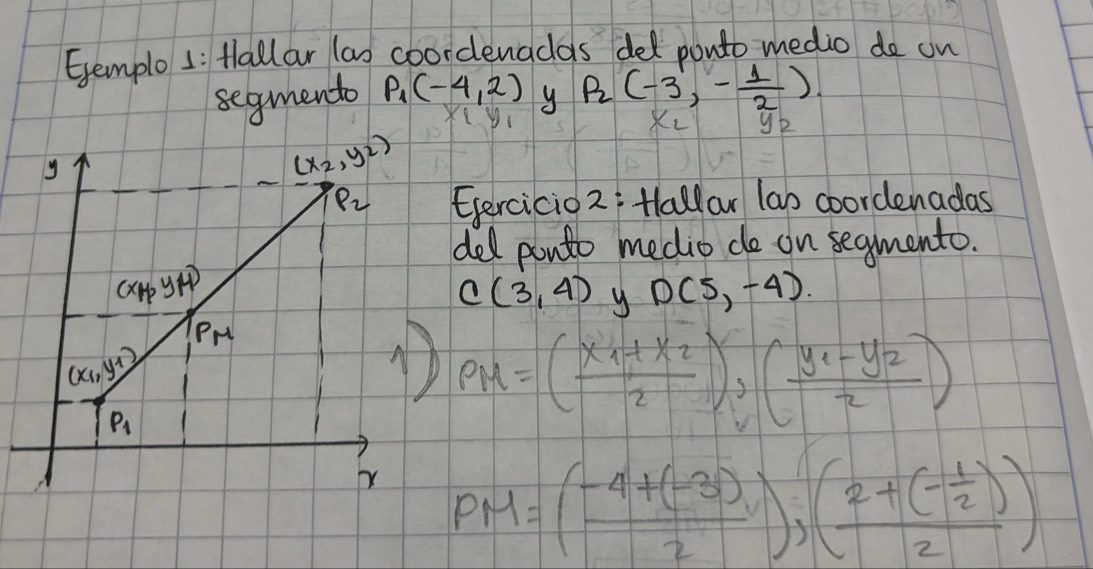 Ejemplo 1: Hallar las coordenadas del punto medio de un
segmento P₁(-4,2) y P₂(-3, -1/2).
x₁ y₁ x₂ y₂
y
(x₂,y₂)
P₂
(xM, yM)
PM
(x₁,y₁)
P₁
x
Ejercicio 2: Hallar las coordenadas
del punto medio de un segmento.
C(3,4) y D(5,-4).
1) PM = ((x₁+x₂)/2), ((y₁-y₂)/2)
PM = ((-4+(-3))/2), ((2+(-1/2))/2)